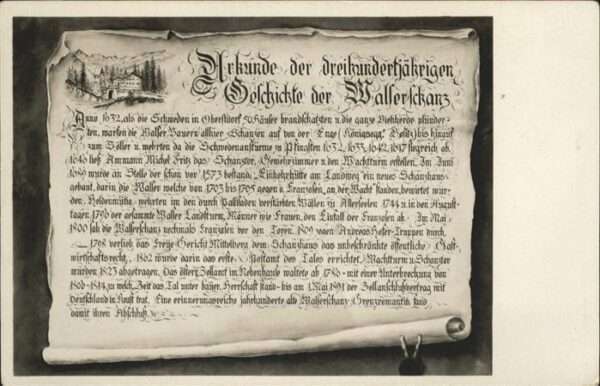 Urkunde der dreihundertjährigen
Geschichte der Walserschanz
Anno 1632, als die Schweden in Oberstdorf 50 Häuser brandschatzten u. die ganze Viehherde plünder-
ten, warfen die Walser Bauern allhier Schanzen auf von der Enge (Königsegg. Besitz) bis hinauf
zum Söller u. wehrten da die Schwedenanstürme zu Pfingsten 1632, 1633, 1642, 1647 siegreich ab.
ließ Ammann Michel Fritz das Schanztor, Gewehrkammer u. den Wachtturm erstellen. Im Juni
1689 wurde an Stelle der schon vor 1573 bestand. "Einkehrhütte am Landweg" ein neues Schanzhaus
gebaut, darin die Walser welche von 1703 bis 1705 gegen d. Franzosen "an der Wacht" standen, bewirtet wur-
den. Heldenmütig wehrten im den durch Pallisaden verstärkten Wällen zu Allerseelen 1744 u. in den August-
tagen 1796 der gesamte Walser Landsturm, Männer wie Frauen, den Einfall der Franzosen ab. Im Mai
1800 sah die Walserschanz nochmals Franzosen vor den Toren, 1809 zogen Andreas Hofer-Truppen durch.
— 1768 verlieh das Freije Gericht Mittelberg dem Schanzhaus das unbeschränkte öffentliche Gast-
wirtschaftsrecht, 1862 wurde darin das erste Postamt des Tales errichtet. Wachtturm u. Schanztor
wurden 1823 abgetragen. Das österr. Zollamt in Nebenhause waltete ab 1786 - mit einer Unterbrechung von
1806-1814, zu welch. Zeit das Tal unter bayer. Herrschaft stand - bis am 1. Mai 1891 der Zollanschlußvertrag mit
Deutschland in Kraft trat. Eine erinnerungsreiche jahrhunderte alte Walserschanz Grenzromantik fand
damit ihren Abschluß.